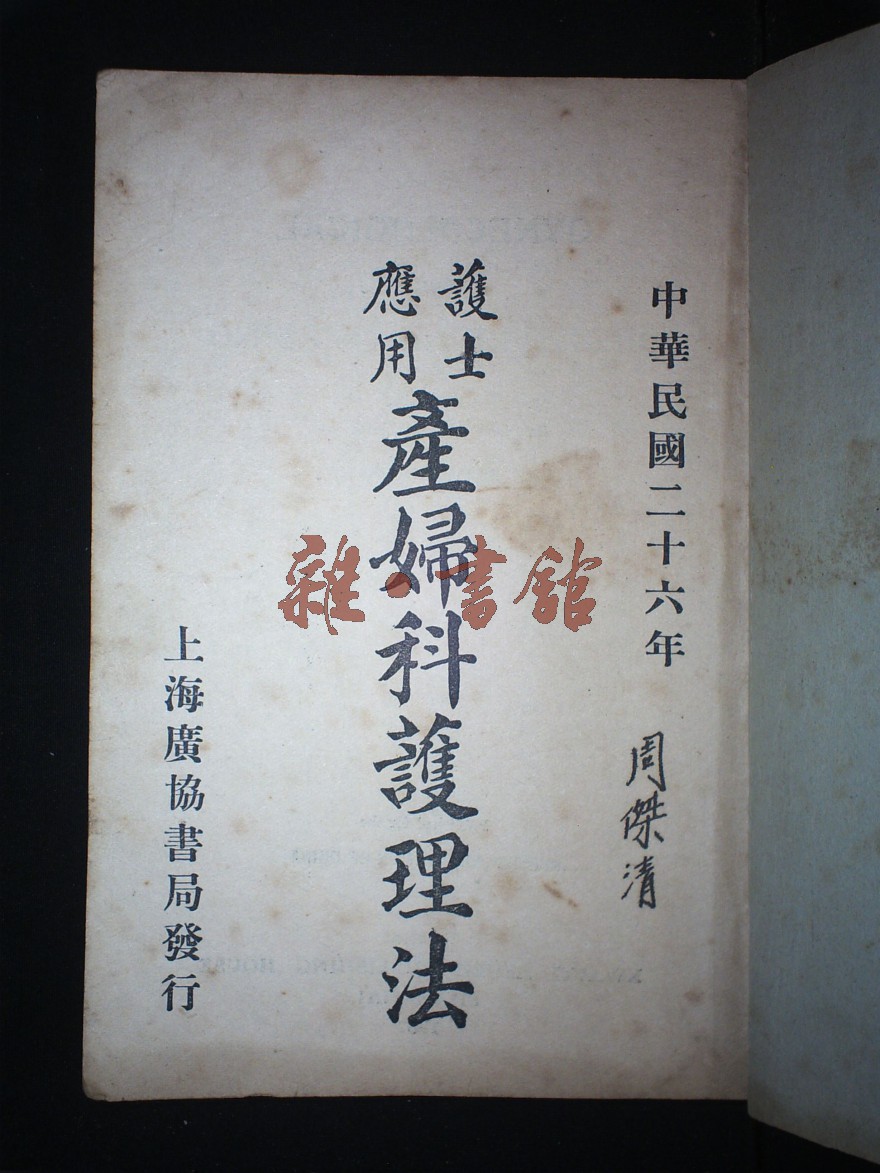 中華民國二十六年
周傑清
護士
應用
產婦科護理法
上海廣協書局發行
雜·書館